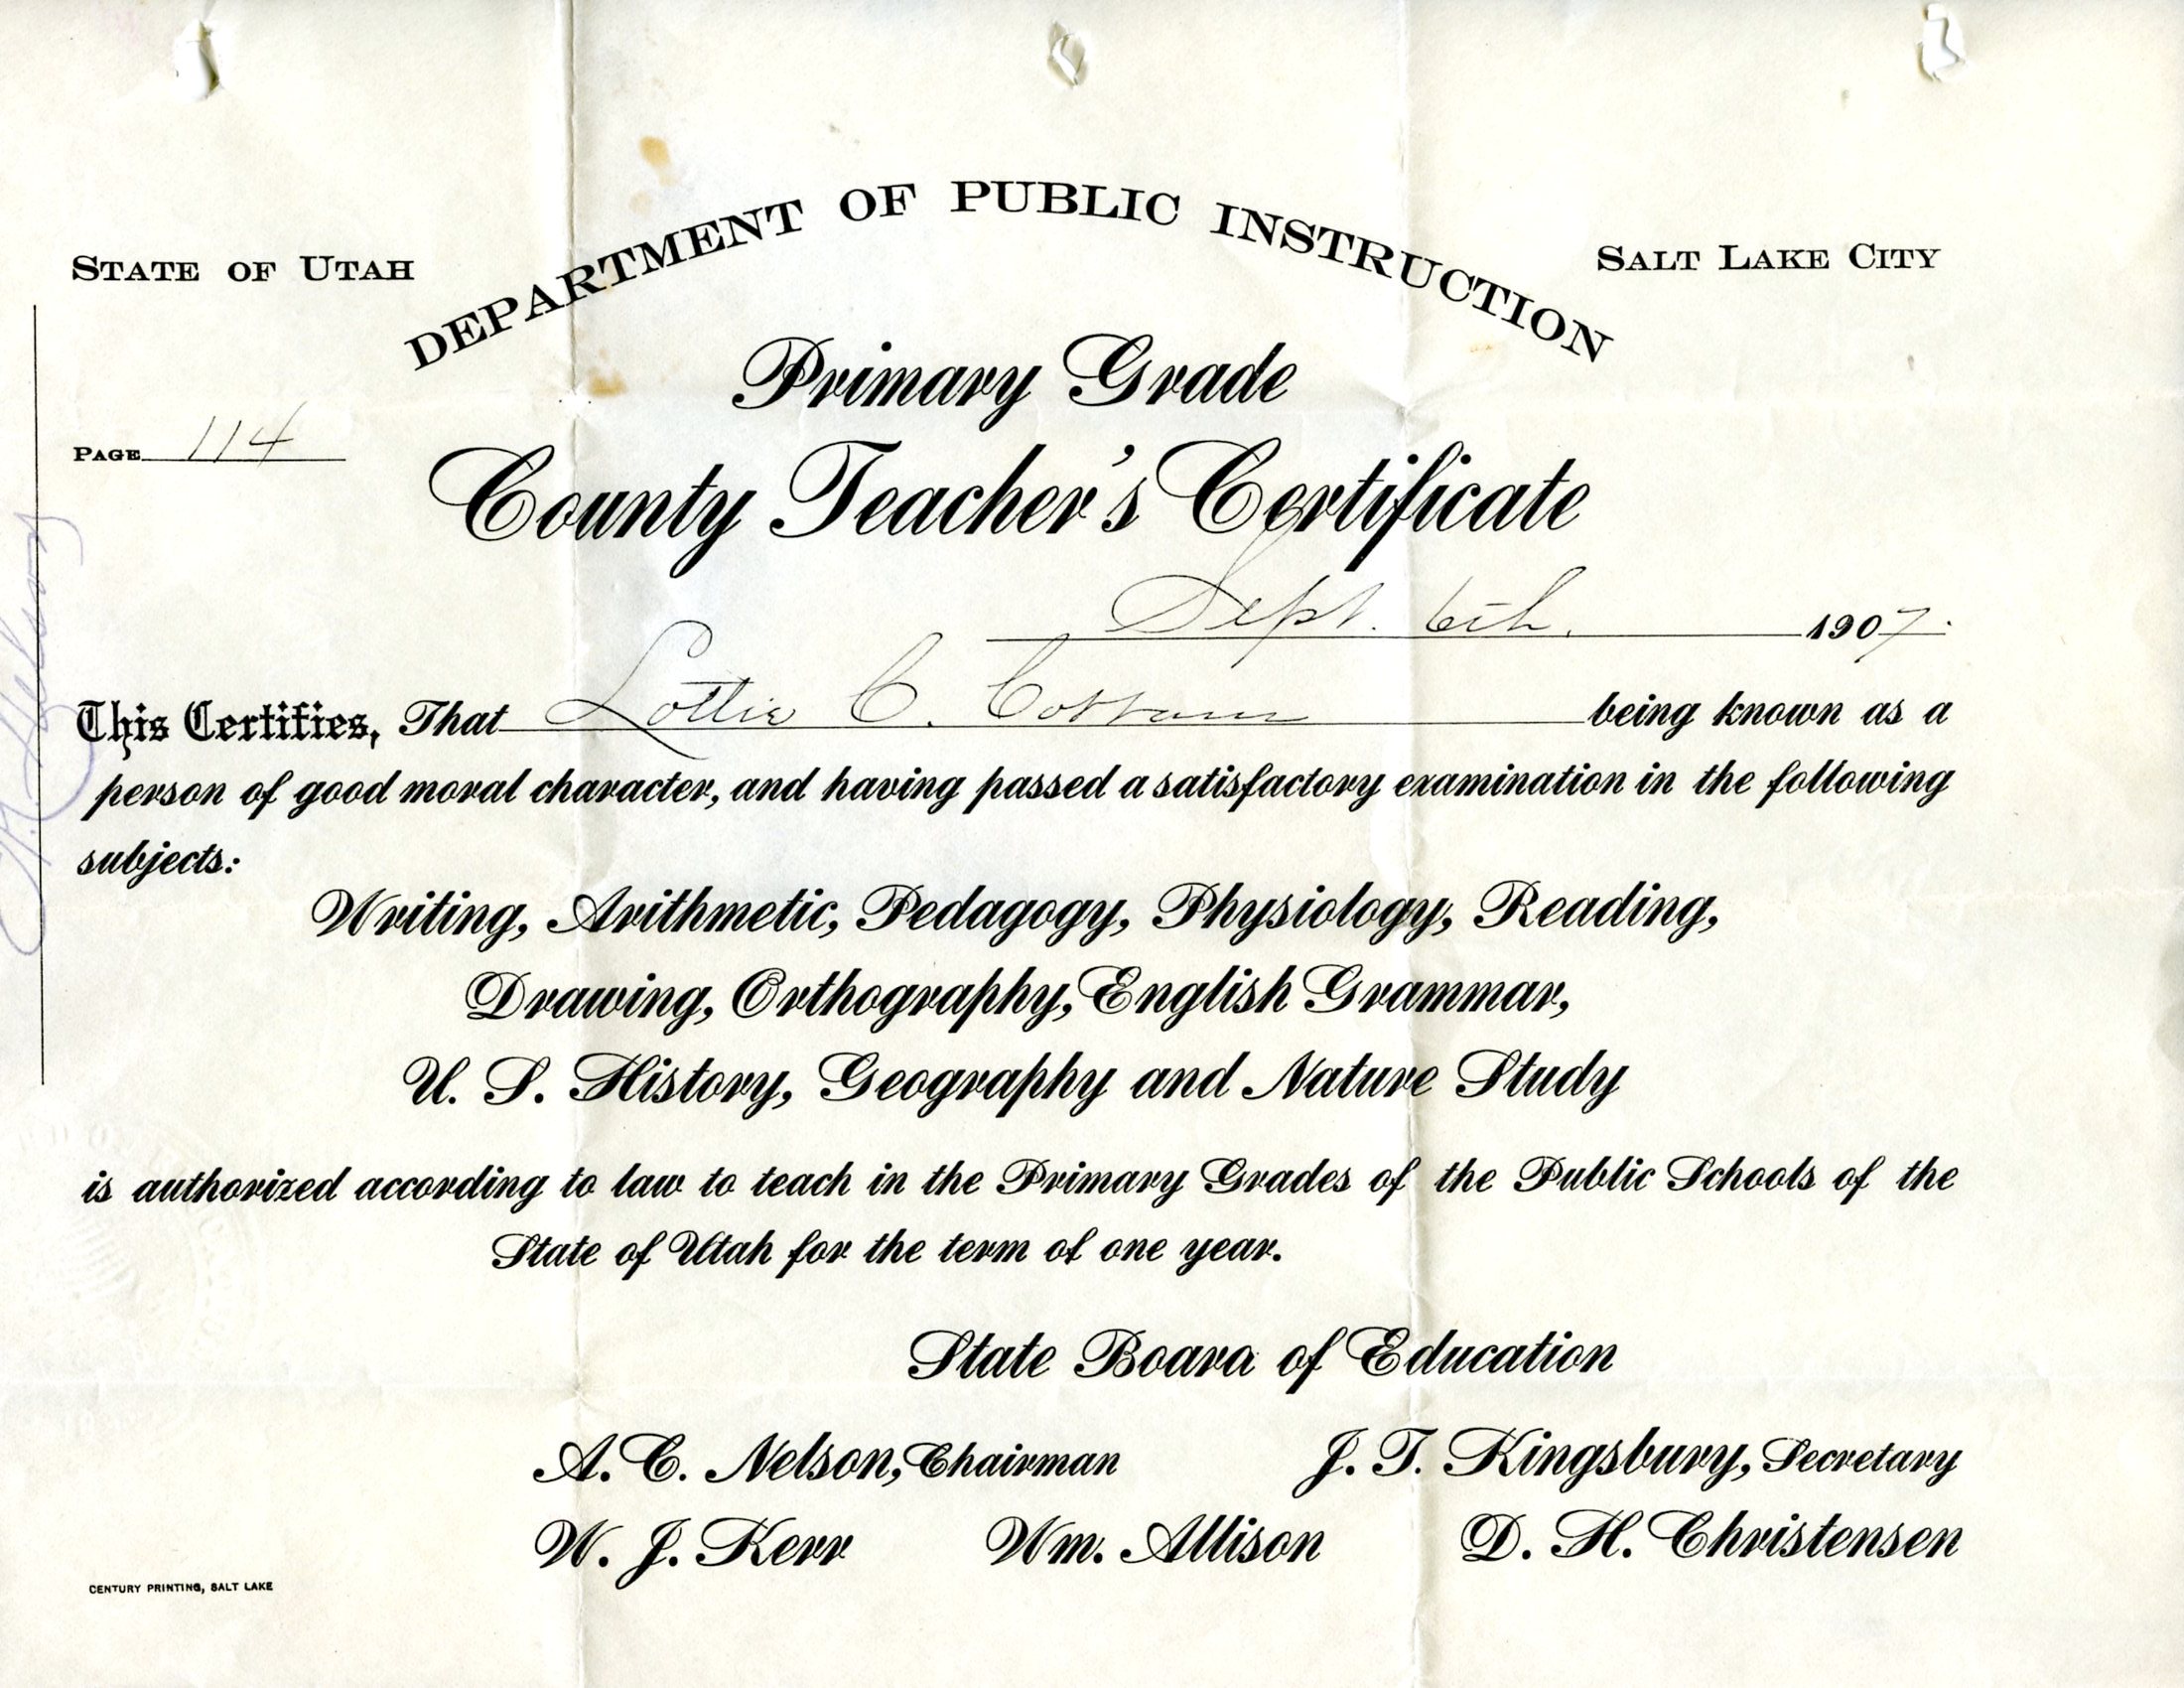 DEPARTMENT OF PUBLIC INSTRUCTION
STATE OF UTAH
SALT LAKE CITY
Primary Grade
PAGE 114
County Teacher's Certificate
Sept. 6th. 1907.
This Certifies, That Lottie C. Cottam being known as a
person of good moral character, and having passed a satisfactory examination in the following
subjects:
Writing, Arithmetic, Pedagogy, Physiology, Reading,
Drawing, Orthography, English Grammar,
U. S. History, Geography and Nature Study
is authorized according to law to teach in the Primary Grades of the Public Schools of the
State of Utah for the term of one year.
State Board of Education
A. C. Nelson, Chairman J. T. Kingsbury, Secretary
W. J. Kerr Wm. Allison D. H. Christensen
CENTURY PRINTING, SALT LAKE